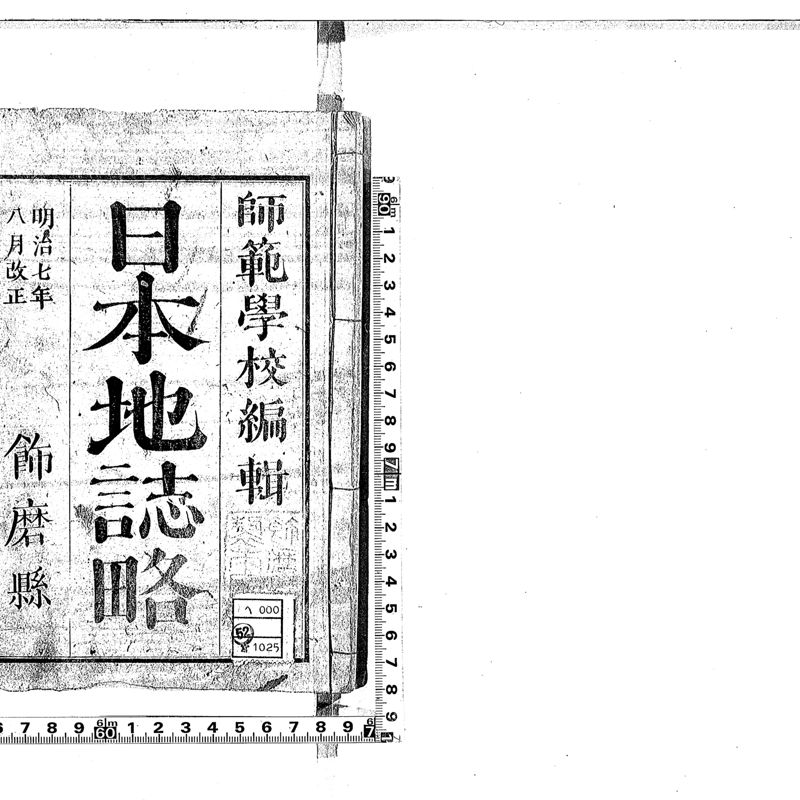 師範學校編輯
日本地誌略
明治七年
八月改正
飾磨縣
ヘ 000
52
1025
9 6m 60 1 2 3 4 5 6 7 8 9 7m 1 2 3 4 5 6 7 8 9
6 7 8 9 6m 60 1 2 3 4 5 6 7 8 9 6 7